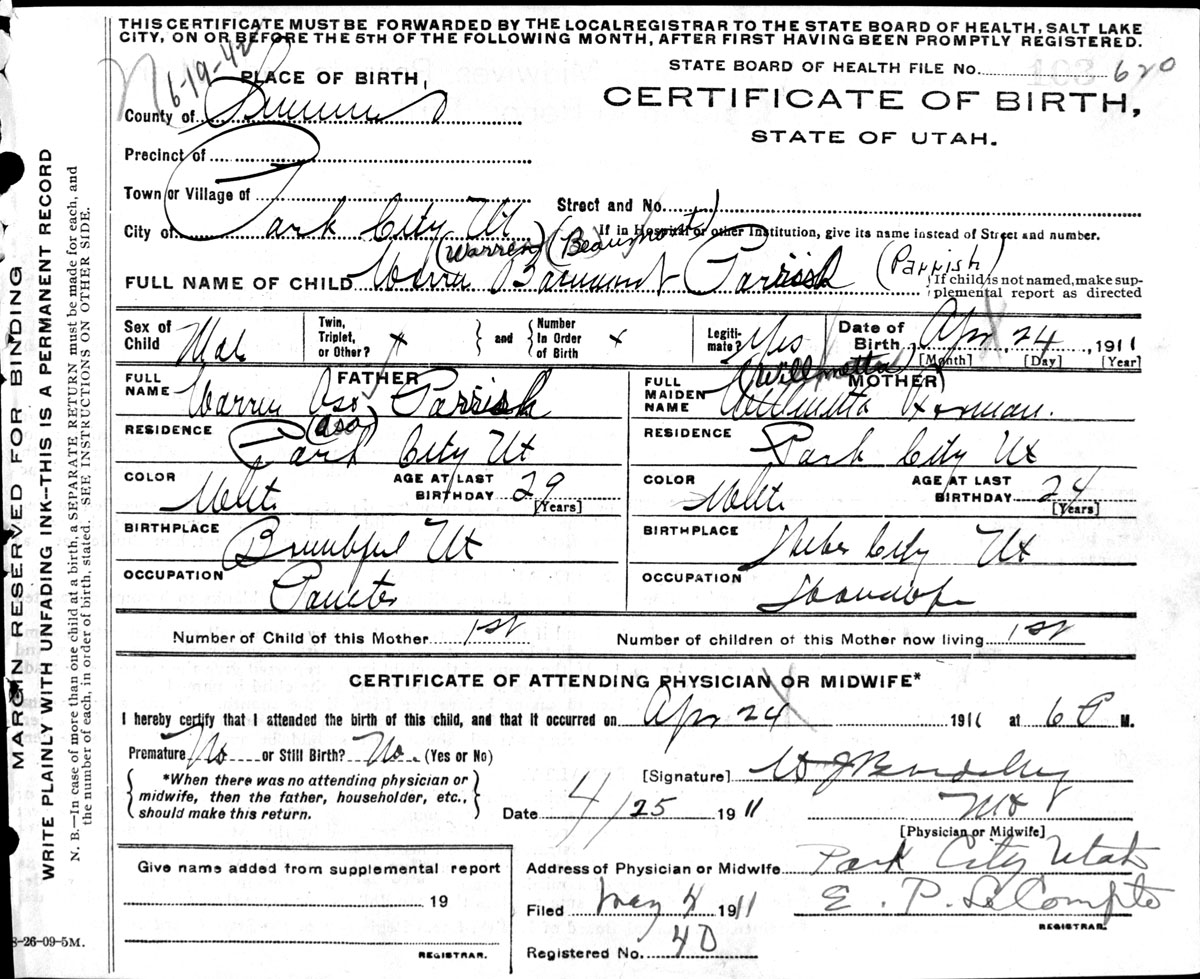 THIS CERTIFICATE MUST BE FORWARDED BY THE LOCAL REGISTRAR TO THE STATE BOARD OF HEALTH, SALT LAKE
CITY, ON OR BEFORE THE 5TH OF THE FOLLOWING MONTH, AFTER FIRST HAVING BEEN PROMPTLY REGISTERED.
6-19-42
PLACE OF BIRTH,
STATE BOARD OF HEALTH FILE NO. 163 620
County of Summit
CERTIFICATE OF BIRTH,
STATE OF UTAH.
Precinct of
Town or Village of
Street and No.
City of Park City Ut
If in Hospital or other Institution, give its name instead of Street and number.
(Warren) (Beaumont) (Parrish)
FULL NAME OF CHILD Warren Parrish
{If child is not named, make sup-
plemental report as directed
Sex of Child Male
Twin, Triplet, or Other? x } and { Number In Order of Birth x
Legiti- mate? Yes
Date of Birth Apr 24, 1911
[Month] [Day] [Year]
FATHER
FULL NAME Warren Asa Parrish
(asa)
RESIDENCE Park City Ut
COLOR White AGE AT LAST BIRTHDAY 29 [Years]
BIRTHPLACE Bountiful Ut
OCCUPATION
MOTHER
(Willmetta)
FULL MAIDEN NAME
RESIDENCE Park City Ut
COLOR White AGE AT LAST BIRTHDAY 24 [Years]
BIRTHPLACE Heber City Ut
OCCUPATION Housewife
Number of Child of this Mother 1st Number of children of this Mother now living 1st
CERTIFICATE OF ATTENDING PHYSICIAN OR MIDWIFE*
I hereby certify that I attended the birth of this child, and that it occurred on Apr 24 1911 at 6 P M.
Premature No or Still Birth? No. (Yes or No)
{*When there was no attending physician or
midwife, then the father, householder, etc.,
should make this return.}
[Signature] W J Bardsley
Date 4/25 1911
[Physician or Midwife]
Address of Physician or Midwife Park City Utah
Filed May 4 1911 E. P. LeCompte
REGISTRAR.
Registered No. 40
Give name added from supplemental report
19
REGISTRAR.
8-26-09-5M.
MARGIN RESERVED FOR BINDING
WRITE PLAINLY WITH UNFADING INK—THIS IS A PERMANENT RECORD
N. B.—In case of more than one child at a birth, a SEPARATE RETURN must be made for each, and
the number of each, in order of birth, stated. SEE INSTRUCTIONS ON OTHER SIDE.